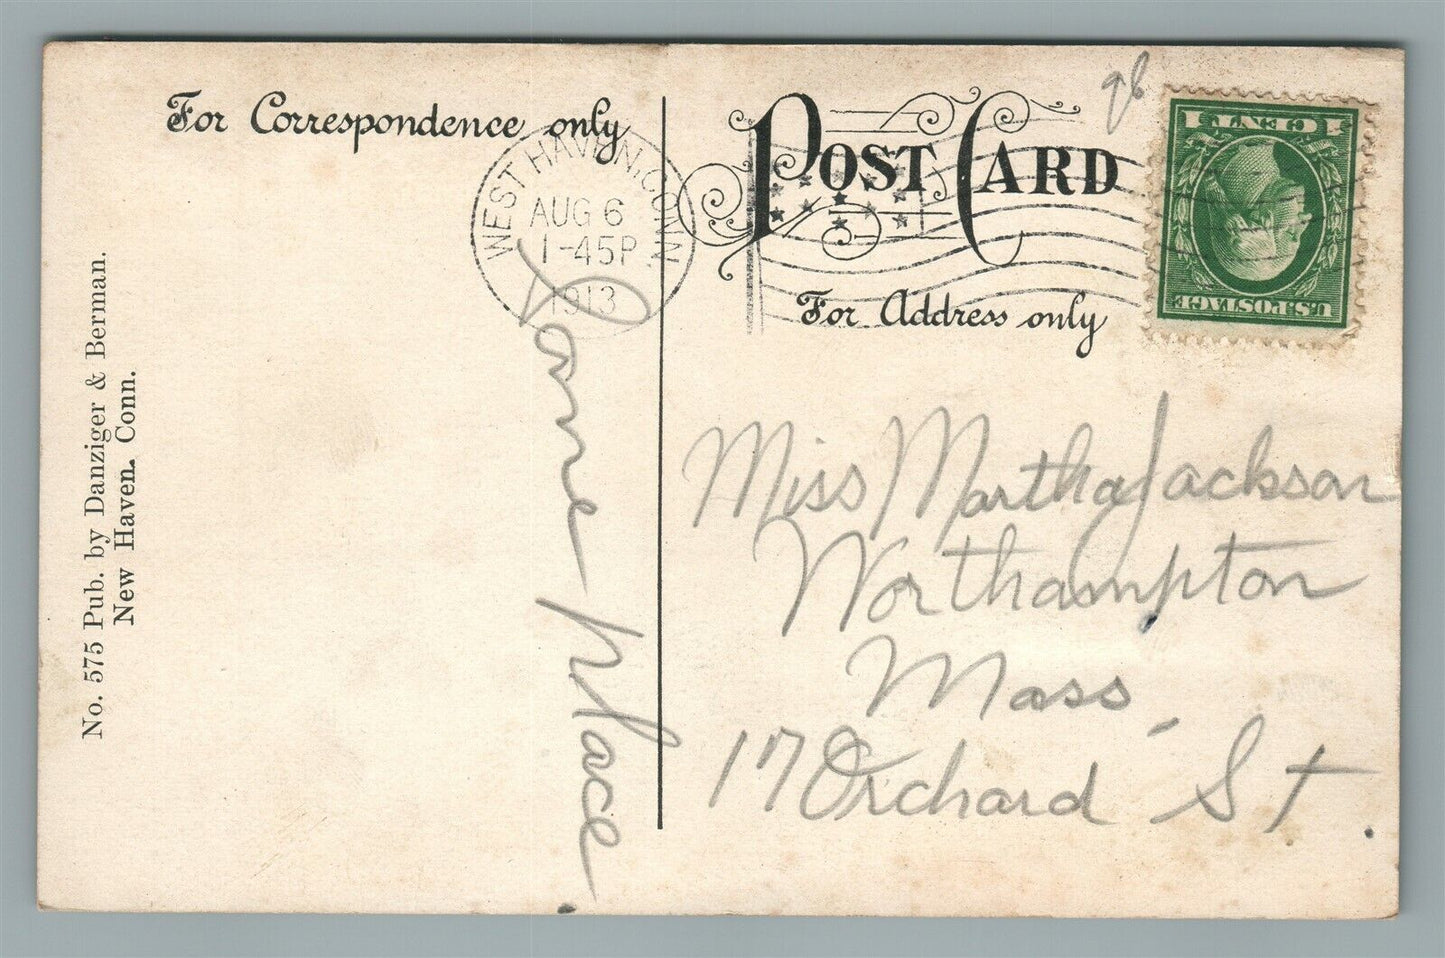 For Correspondence only
POST CARD
For Address only
WEST HAVEN, CONN.
AUG 6
1-45P
1913
1 CENT 1
U.S. POSTAGE
No. 575 Pub. by Danziger & Berman.
New Haven. Conn.
place
Miss Martha Jackson
Northampton
Mass.
17 Orchard St.